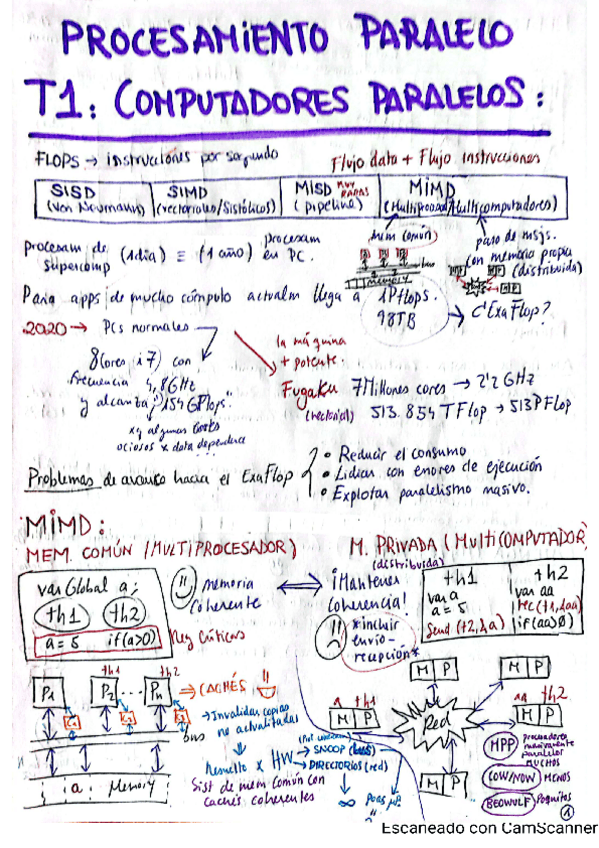 PROCESAMIENTO PARALELO
T1: COMPUTADORES PARALELOS:
FLOPS → instrucciones por segundo
Flujo dato + Flujo instrucciones
SISD
(Von Neumann)
SIMD
(vectoriales/Sistólicos)
MISD MUY RARAS
(pipeline)
MIMD
(Multiproces/Multicomputadores)
procesam de supercomp (1 dia) ≡ (1 año) procesam en PC.
mem común
memory
bus
paso de msjs.
con memoria propia
(distribuida)
Para apps de mucho cómputo actualm llega a 1Pflops.
98TB
→ c' ExaFlop?
2020 → PCs normales
8 Cores i7) con
frecuencia 4,8GHz
y alcanza 154 GFlops.
xq algunos cores
ociosos x data dependence
la máquina
+ potente.
Fugaku 7Millones cores → 2'2 GHz
(vectorial) 513.854 TFlop → 513PFlop
Problemas de avance hacia el ExaFlop
• Reducir el consumo
• Lidiar con errores de ejecución
• Explotar paralelismo masivo.
MIMD:
MEM. COMÚN (MULTIPROCESADOR)
M. PRIVADA (MULTICOMPUTADOR)
(distribuida)
var Global a;
th1 th2
a = 5 if(a>0)
Reg Críticas
memoria
Coherente
¡Mantener
coherencia!
*incluir
envío-
recepción*
th1
var a
a = 5
Send (t2, &a)
th2
var aa
rec(t1, &aa)
if(aa>0)
th1 th2
P1 P2 ... Pn ⇒ CACHÉS
bus
a Memory
→ Invalidar copias
no actualizadas
Remedio x HW
→ SNOOP (bus)
→ DIRECTORIOS (red)
Sist de mem común con
cachés coherentes
∞ Pocos
M P
M P
a th1
M P
Red
aa th2
M P
M P
MPP procesadores masivamente paralelos MUCHOS
COW/NOW MENOS
BEOWULF Poquitos
1
Escaneado con CamScanner